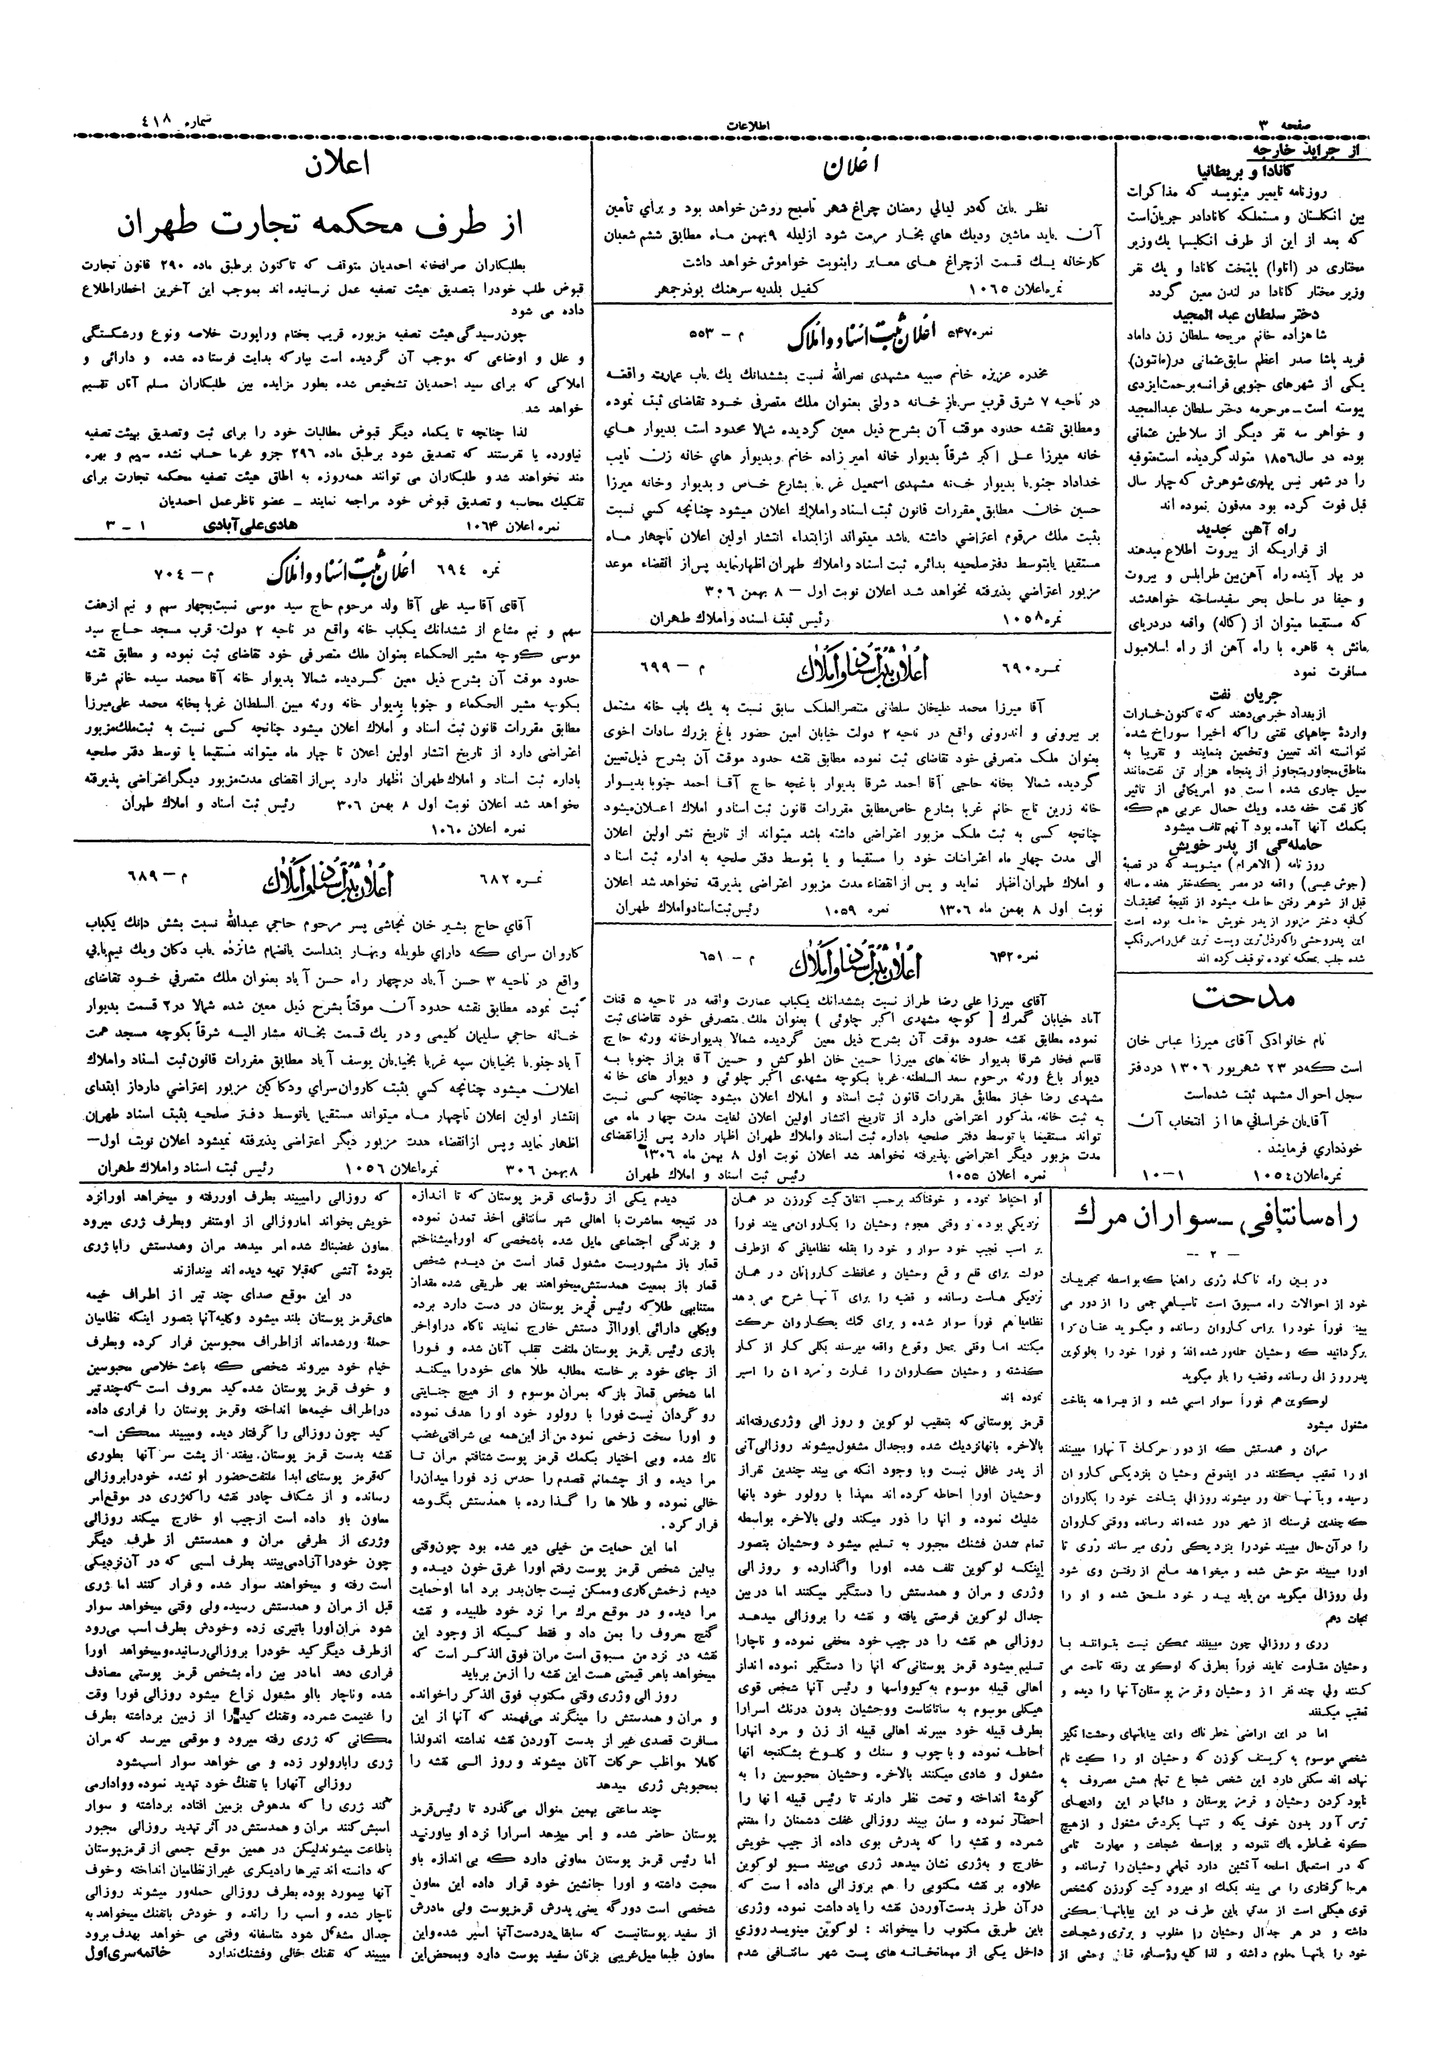 صفحه ۳
اطلاعات
شماره ٤١٨
از جراید خارجه
کانادا و بریطانیا
روزنامه تایمیر مینویسد که مذاکرات
بین انگلستان و مستملکه کانادادر جریان‌است
که بعد از این از طرف انگلیسها یك وزیر
مختاری در (اتاوا) پایتخت کانادا و یك نفر
وزیر مختار کانادا در لندن معین گردد
دختر سلطان عبد المجید
شاهزاده خانم مریحه سلطان زن داماد
فرید پاشا صدر اعظم سابق‌عثمانی در(مانتون)
یکی از شهرهای جنوبی فرانسه برحمت‌ایزدی
پیوسته است ـ مرحرمه دختر سلطان عبدالمجید
و خواهر سه نفر دیگر از سلاطین عثمانی
بوده در سال۱۸۵٦ متولدگردیده است‌متوفیه
را در شهر نیس پهلوی شوهرش که چهار سال
قبل فوت کرده بود مدفون نموده اند
راه آهن جدید
از قراریکه از بیروت اطلاع میدهند
در بهار آینده راه آهن‌بین طرابلس و بیروت
و حیفا در ساحل بحر سفیدساخته خواهدشد
که مستقیما میتوان از (کاله) واقعه دردریای
مانش به قاهره با راه آهن از راه اسلامبول
مسافرت نمود
جریان نفت
ازبغداد خبرمی‌دهند که تاکنون‌خسارات
واردۀ چاههای نفتی راکه اخیرا سوراخ شده
نتوانسته اند تعیین وتخمین بنمایند و تقریبا به
مناطق‌مجاورمتجاوز از پنجاه هزار تن نفت‌مانند
سیل جاری شده است دو امریکائی از تاثیر
گاز نفت خفه شده ویك حمال عربی هم که
بکمك آنها آمده بود آنهم تلف میشود
حامله‌گی از پدر خویش
روز نامه (الاهرام) مینویسد که در قصبۀ
(جوش عیسی) واقعه در مصر یکدختر هفده ساله
قبل از شوهر رفتن حامله میشود از نتیجۀ تحقیقات
کافیه دختر مزبور از پدر خویش حامله بوده است
این پدروحشی راکه‌رذل‌ترین وپست ترین عمل‌رامرتکب
شده جلب بمحکمه نموده توقیف کرده اند
مدحت
نام خانوادگی آقای میرزا عباس خان
است که‌در ۲۳ شهریور ۱۳۰٦ دردفتر
سجل احوال مشهد ثبت شده‌است
آقایان خراسانی ها از انتخاب آن
خودداری فرمایند .
نمره‌اعلان ۱۰۵٤ ۱ـ۱۰
اعلان
نظر باین که‌در لیالی رمضان چراغ شهر تاصبح روشن خواهد بود و برای تأمین
آن باید ماشین ودیك های بخار مرمت شود ازلیله ۹بهمن ماه مطابق ششم شعبان
کارخانه یك قسمت ازچراغ های معابر رابنوبت خواموش خواهد داشت
نمره‌اعلان ۱۰٦۵ کفیل بلدیه سرهنك بوذرجمهر
نمره ۵۴۷ اعلان ثبت اسناد و املاک م ـ ۵۵۳
مخدره عزیزه خانم صبیه مشهدی نصرالله نسبت بششدانك یك باب عمارت واقعه
در ناحیه ۷ شرق قرب سرباز خانه دولتی بعنوان ملك متصرفی خود تقاضای ثبت نموده
ومطابق نقشه حدود موقت آن بشرح ذیل معین گردیده شمالا محدود است بدیوار های
خانه میرزا علی اکبر شرقاً بدیوار خانه امیر زاده خانم وبدیوار های خانه زن نایب
خداداد جنوباً بدیوار خانه مشهدی اسمعیل غرباً بشارع خاص و بدیوار وخانه میرزا
حسین خان مطابق مقررات قانون ثبت اسناد و املاك اعلان میشود چنانچه کسی نسبت
بثبت ملك مرقوم اعتراضی داشته باشد میتواند ازابتداء انتشار اولین اعلان تاچهار ماه
مستقیما یابتوسط دفترصلحیه بدائره ثبت اسناد و املاك طهران اظهارنماید پس‌از انقضاء موعد
مزبور اعتراضی پذیرفته نخواهد شد اعلان نوبت اول ـ ۸ بهمن ۳۰٦
نمره ۱۰۵۸ رئیس ثبت اسناد واملاك طهران
نمره ٦۹۰ اعلان ثبت اسناد و املاک م ـ ٦۹۹
آقا میرزا محمد علیخان سلطانی منتصرالملك سابق نسبت به یك باب خانه مشتمل
بر بیرونی و اندرونی واقع در ناحیه ۲ دولت خیابان امین حضور باغ بزرك سادات اخوی
بعنوان ملك متصرفی خود تقاضای ثبت نموده مطابق نقشه حدود موقت آن بشرح ذیل‌تعیین
گردیده شمالا بخانه حاجی آقا احمد شرقا بدیوار باغچه حاج آقا احمد جنوبا بدیوار
خانه زرین تاج خانم غربا بشارع خاص‌مطابق مقررات قانون ثبت اسناد و املاك اعلان‌میشود
چنانچه کسی به ثبت ملك مزبور اعتراضی داشته باشد میتواند از تاریخ نشر اولین اعلان
الی مدت چهار ماه اعتراضات خود را مستقیما و یا بتوسط دفتر صلحیه به اداره ثبت اسناد
و املاك طهران اظهار نماید و پس از انقضاء مدت مزبور اعتراضی پذیرفته نخواهد شد اعلان
نوبت اول ۸ بهمن ماه ۱۳۰٦ نمره ۱۰۵۹ رئیس‌ثبت‌اسنادواملاك طهران
نمره ٦۴۲ اعلان ثبت اسناد و املاک م ـ ٦۵۱
آقای میرزا علی رضا طراز نسبت بششدانك یکباب عمارت واقعه در ناحیه ۵ قنات
آباد خیابان گمرك [ کوچه مشهدی اکبر چلوئی ) بعنوان ملك متصرفی خود تقاضای ثبت
نموده مطابق نقشه حدود موقت آن بشرح ذیل معین گردیده شمالا بدیوارخانه ورثه حاج
قاسم فخار شرقا بدیوار خانه های میرزا حسین خان اطوکش و حسین آقا بزاز جنوبا به
دیوار باغ ورثه مرحوم سعد السلطنه غربا بکوچه مشهدی اکبر چلوئی و دیوار های خانه
مشهدی رضا خباز مطابق مقررات قانون ثبت اسناد و املاك اعلان میشود چنانچه کسی نسبت
به ثبت خانه مذکور اعتراضی دارد از تاریخ انتشار اولین اعلان لغایت مدت چهار ماه می
تواند مستقیما یا توسط دفتر صلحیه باداره ثبت اسناد واملاك طهران اظهار دارد پس ازانقضای
مدت مزبور دیگر اعتراضی پذیرفته نخواهد شد اعلان نوبت اول ۸ بهمن ماه ۱۳۰٦
نمره اعلان ۱۰۵۵ رئیس ثبت اسناد و املاك طهران
اعلان
از طرف محکمه تجارت طهران
بطلبکاران صرافخانه احمدیان متوقف که تاکنون برطبق ماده ۲۹۰ قانون تجارت
قبوض طلب خودرا بتصدیق هیئت تصفیه عمل نرسانیده اند بموجب این آخرین اخطاراطلاع
داده می شود
چون‌رسیدگی هیئت تصفیه مزبوره قریب بختام وراپورت خلاصه ونوع ورشکستگی
و علل و اوضاعی که موجب آن گردیده است بپارکه بدایت فرستاده شده و دارائی و
املاکی که برای سید احمدیان تشخیص شده بطور مزایده بین طلبکاران مسلم آنان تقسیم
خواهد شد
لذا چنانچه تا یکماه دیگر قبوض مطالبات خود را برای ثبت وتصدیق بهیئت تصفیه
نیاورده یا نفرستند که تصدیق شود برطبق ماده ۲۹٦ جزو غرما حساب نشده سهم و بهره
مند نخواهند شد و طلبکاران می توانند همه‌روزه به اطاق هیئت تصفیه محکمه تجارت برای
تفکیك محاسبه و تصدیق قبوض خود مراجعه نمایند ـ عضو ناظرعمل احمدیان
نمره اعلان ۱۰٦۴ هادی‌علی‌آبادی ۱ ـ ۳
نمره ٦۹۴ اعلان ثبت اسناد و املاک م ـ ۷۰۴
آقای آقا سید علی آقا ولد مرحوم حاج سید موسی نسبت‌بچهار سهم و نیم ازهفت
سهم و نیم مشاع از ششدانك یکباب خانه واقع در ناحیه ۲ دولت قرب مسجد حاج سید
موسی کوچه مشیر الحکماء بعنوان ملك متصرفی خود تقاضای ثبت نموده و مطابق نقشه
حدود موقت آن بشرح ذیل معین گردیده شمالا بدیوار خانه آقا محمد سیده خانم شرقا
بکوچه مشیر الحکماء و جنوبا بدیوار خانه ورثه مبین السلطان غربا بخانه محمد علی‌میرزا
مطابق مقررات قانون ثبت اسناد و املاك اعلان میشود چنانچه کسی نسبت به ثبت‌ملك‌مزبور
اعتراضی دارد از تاریخ انتشار اولین اعلان تا چهار ماه میتواند مستقیما یا توسط دفتر صلحیه
باداره ثبت اسناد و املاك‌طهران اظهار دارد پس‌از انقضای مدت‌مزبور دیگراعتراضی پذیرفته
نخواهد شد اعلان نوبت اول ۸ بهمن ۳۰٦ رئیس ثبت اسناد و املاك طهران
نمره اعلان ۱۰٦۰
نمره ٦۸۲ اعلان ثبت اسناد و املاک م ـ ٦۸۹
آقای حاج بشیر خان نجاشی پسر مرحوم حاجی عبدالله نسبت بشش دانك یکباب
کاروان سرای که دارای طویله وبنهار بنداست بانضمام شانزده باب دکان ویك نیم‌بابی
واقع در ناحیه ۳ حسن آباد درچهار راه حسن آباد بعنوان ملك متصرفی خود تقاضای
ثبت نموده مطابق نقشه حدود آن موقتاً بشرح ذیل معین شده شمالا در۲ قسمت بدیوار
خانه حاجی سلیمان کلیمی و در یك قسمت بخانه مشار الیه شرقاً بکوچه مسجد همت
آباد جنوبا بخیابان سپه غربا بخیابان یوسف آباد مطابق مقررات قانون‌ثبت اسناد و املاك
اعلان میشود چنانچه کسی بثبت کاروان‌سرای ودکاکین مزبور اعتراضی دارداز ابتدای
انتشار اولین اعلان تاچهار ماه میتواند مستقیما یاتوسط دفتر صلحیه بثبت اسناد طهران
اظهار نماید وپس ازانقضاء مدت مزبور دیگر اعتراضی پذیرفته نمیشود اعلان نوبت اول ـ
۸بهمن ۳۰٦ نمره‌اعلان ۱۰۵٦ رئیس ثبت اسناد واملاك طهران
راه سانتافی ـ سواران مرك
ـ ۲ ـ
در بین راه ناگاه ژری راهنما که بواسطه تجربیات
خود از احوالات راه مسبوق است تاسیاهی جمی را از دور می
بیند فوراً خود را براس کاروان رسانده و میگوید عنان را
برگردانید که وحشیان حمله‌ور شده‌اند و فورا خود را به‌لوکوین
پدر روز الی رسانده وقضیه را باو میگوید
لوکوین هم فوراً سوار اسبی شده و از بیراهه بتاخت
مشغول میشود
مران و همدستش که از دور حرکات آنهارا میبینند
او را تعقیب میکنند در اینموقع وحشیان بنزدیکی کاروان
رسیده وبآنها حمله ور میشوند روزالی بتاخت خود را بکاروان
که چندین فرسنك از شهر دور شده اند رسانده ووقتی کاروان
را درآن‌حال میبیند خودرا بنزدیکی ژری میرساند ژری تا
اورا میبیند متوحش شده و میخواهد مانع از رفتن وی شود
ولی روزالی میگوید من باید بپدر خود ملحق شده و او را
نجات دهم
ژری و روزالی چون میبینند ممکن نیست بتوانند با
وحشیان مقاومت نمایند فوراً بطرفی‌که لوکوین رفته تاخت می
کنند ولی چند نفر از وحشیان وقرمز پوستان‌آنها را دیده و
تعقیب میکنند
اما در این اراضی خطرناك واین بیابانهای وحشت‌انگیز
شخصی موسوم به کریستف کورزن که وحشیان او را کیت نام
نهاده اند سکنی دارد این شخص شجاع تمام همش مصروف به
نابود کردن وحشیان و قرمز پوستان و دائما در این وادیهای
ترس آور بدون خوف یکه و تنها بگردش مشغول و ازهیچ
گونه مخاطره باك ننموده و بواسطه شجاعت و مهارت تامی
که در استعمال اسلحه آتشین دارد تمامی وحشیان را ترسانده و
هرجا گرفتاری را می بیند بکمك او میرود کیت کورزن که‌شخص
قوی هیکلی است از مدتی باین طرف در این بیابانها سکنی
داشته و در هر جدال وحشیان را مغلوب و برتری و شجاعت
خود را بآنها معلوم داشته و لذا کلیه رؤسای قبائل وحشی از
او احتیاط نموده و خوفناکند برحسب اتفاق کیت کورزن در همان
نزدیکی بوده و وقتی هجوم وحشیان را بکاروان‌می بیند فوراً
بر اسب نجیب خود سوار و خود را بقلعه نظامیانی که ازطرف
دولت برای قلع و قمع وحشیان و محافظت کاروانان در همان
نزدیکی هاست رسانده و قضیه را برای آنها شرح می دهد
نظامیاهم فوراً سوار شده و برای کمك بکاروان حرکت
میکنند اما وقتی بمحل وقوع واقعه میرسند بکلی کار از کار
گذشته و وحشیان کاروان را غارت و مردان را اسیر
نموده اند
قرمز پوستانی‌که بتعقیب لوکوین و روز الی وژری رفته‌اند
بالاخره بانهانزدیك شده وبجدال مشغول‌میشوند روزالی‌آنی
از پدر غافل نیست وبا وجود انکه می بیند چندین نفراز
وحشیان اورا احاطه کرده اند معهذا با رولور خود بانها
شلیك نموده و انها را دور میکند ولی بالاخره بواسطه
تمام شدن فشنك مجبور به تسلیم میشود وحشیان بتصور
اینکه لوکوین تلف شده اورا واگذارده و روزالی
وژری و مران و همدستش را دستگیر میکنند اما دربین
جدال لوکوین فرصتی یافته و نقشه را بروزالی میدهد
روزالی هم نقشه را در جیب خود مخفی نموده و ناچار!
تسلیم میشود قرمز پوستانی که انها را دستگیر نموده انداز
اهالی قبیله موسوم به‌کیوواسها و رئیس آنها شخص قوی
هیکلی موسوم به ساتانتاست ووحشیان بدون درنك اسرارا
بطرف قبیله خود میبرند اهالی قبیله از زن و مرد انهارا
احاطه نموده و با چوب و سنك و کلوخ بشکنجه آنها
مشغول و شادی میکنند بالاخره وحشیان محبوسین را به
گوشۀ انداخته و تحت نظر دارند تا رئیس قبیله آنها را
احضار نموده و سان ببیند روزالی غفلت دشمنان را مغتنم
شمرده و نقشه را که پدرش بوی داده از جیب خویش
خارج و به‌ژری نشان میدهد ژری می‌بیند مسیو لوکوین
علاوه بر نقشه مکتوبی را هم بروز الی داده است که
درآن طرز بدست‌آوردن نقشه را یاد داشت نموده وژری
باین طریق مکتوب را میخواند : لوکوین مینویسد روزی
داخل یکی از مهمانخانه های پست شهر سانتافی شدم
دیدم یکی از رؤسای قرمز پوستان که تا اندازه
در نتیجه معاشرت با اهالی شهر سانتافی اخذ تمدن نموده
و بزندگی اجتماعی مایل شده باشخصی که اورامیشناختم
قمار باز مشهوریست مشغول قمار است من دیدم شخص
قمار باز بمعیت همدستش‌میخواهند بهر طریقی شده مقدار
متنابهی طلاکه رئیس قرمز پوستان در دست دارد برده
وبکلی دارائی اوراز دستش خارج نمایند ناگاه دراواخر
بازی رئیس قرمز پوستان ملتفت تقلب آنان شده و فورا
از جای خود بر خاسته مطالبه طلا های خودرا میکند
اما شخص قمار بازکه بمران موسوم و از هیچ جنایتی
رو گردان نیست فورا با رولور خود او را هدف نموده
و اورا سخت زخمی نمود من از این‌همه بی شرافتی غضب
ناك شده وبی اختیار بکمك قرمز پوست شتافتم مران تا
مرا دیده و از چشمانم قصدم را حدس زد فورا میدان‌را
خالی نموده و طلا ها را گذارده با همدستش بگوشه
فرار کرد .
اما این حمایت من خیلی دیر شده بود چون‌وقتی
ببالین شخص قرمز پوست رفتم اورا غرق خون دیده و
دیدم زخمش‌کاری وممکن نیست جان‌بدر برد اما اوحمایت
مرا دیده و در موقع مرك مرا نزد خود طلبیده و نقشه
گنج معروف را بمن داد و فقط کسیکه از وجود این
نقشه در نزد من مسبوق است مران فوق الذکر است که
میخواهد باهر قیمتی هست این نقشه را ازمن برباید
روز الی وژری وقتی مکتوب فوق الذکر راخوانده
و مران و همدستش را مینگرند می‌فهمند که آنها از این
مسافرت قصدی غیر از بدست آوردن نقشه نداشته اندولذا
کاملا مواظب حرکات آنان میشوند و روز الی نقشه را
بمحبوبش ژری میدهد
چند ساعتی بهمین منوال می‌گذرد تا رئیس‌قرمز
پوستان حاضر شده و امر میدهد اسرارا نزد او بیاورنید
اما رئیس قرمز پوستان معاونی دارد که بی اندازه باو
محبت داشته و اورا جانشین خود قرار داده این معاون
شخصی است دورگه یعنی پدرش قرمزپوست ولی مادرش
از سفید پوستانیست که سابقا دردست‌آنها اسیر شده‌واین
معاون طبعا میل‌غریبی بزنان سفید پوست دارد وبمحض‌این
که روزالی رامیبیند بطرف اوررفته و میخواهد اورانزد
خویش بخواند اماروزالی از اومتنفر وبطرف ژری میرود
معاون غضبناك شده امر میدهد مران وهمدستش رابا ژری
بتودۀ آتشی که‌قبلا تهیه دیده اند بیندازند
در این موقع صدای چند تیر از اطراف خیمه
های‌قرمز پوستان بلند میشود وکلیه‌آنها بتصور اینکه نظامیان
حملۀ ورشده‌اند ازاطراف محبوسین فرار کرده وبطرف
خیام خود میروند شخصی که باعث خلاصی محبوسین
و خوف قرمز پوستان شده‌کید معروف است که‌چندتیر
دراطراف خیمه‌ها انداخته وقرمز پوستان را فراری داده
کید چون روزالی را گرفتار دیده ومیبیند ممکن است
نقشه بدست قرمز پوستان بیفتد از پشت سر آنها بطوری
که‌قرمز پوستای ابدا ملتفت‌حضور او نشده خودرابروزالی
رسانده و از شکاف چادر نقشه راکه‌ژری در موقع‌امر
معاون باو داده است ازجیب او خارج میکند روزالی
وژری از طرفی مران و همدستش از طرف دیگر
چون خودراآزادمی‌بینند بطرف اسبی که در آن‌نزدیکی
است رفته و میخواهند سوار شده و فرار کنند اما ژری
قبل از مران و همدستش رسیده ولی وقتی میخواهد سوار
شود مران‌اورا باتیری زده وخودش بطرف اسب می‌رود
ازطرف دیگرکید خودرا بروزالی رسانیده‌ومیخواهد اورا
فراری دهد امادر بین راه بشخص قرمز پوستی مصادف
شده وناچار بااو مشغول نزاع میشود روزالی فورا وقت
را غنیمت شمرده وتفنك کیدرا از زمین برداشته بطرف
مکانی که ژری رفته میرود و موقعی میرسد که مران
ژری رابارولور زده و می خواهد سوار اسب‌شود
روزالی آنهارا با تفنك خود تهدید نموده ووادارمی
کند ژری را که مدهوش بزمین افتاده برداشته و سوار
اسبش‌کنند مران و همدستش در اثر تهدید روزالی مجبور
باطاعت میشوندلیکن در همین موقع جمعی از قرمزپوستان
که دانسته اند تیرها رادیگری غیرازنظامیان انداخته وخوف
آنها بیمورد بوده بطرف روزالی حمله‌ور میشوند روزالی
ناچار شده و اسب را رانده و خودش باتفنك میخواهد به
جدال مشغول شود متاسفانه وقتی می خواهد بهدف برود
میبیند که تفنك خالی وفشنك‌ندارد خاتمه‌سری‌اول